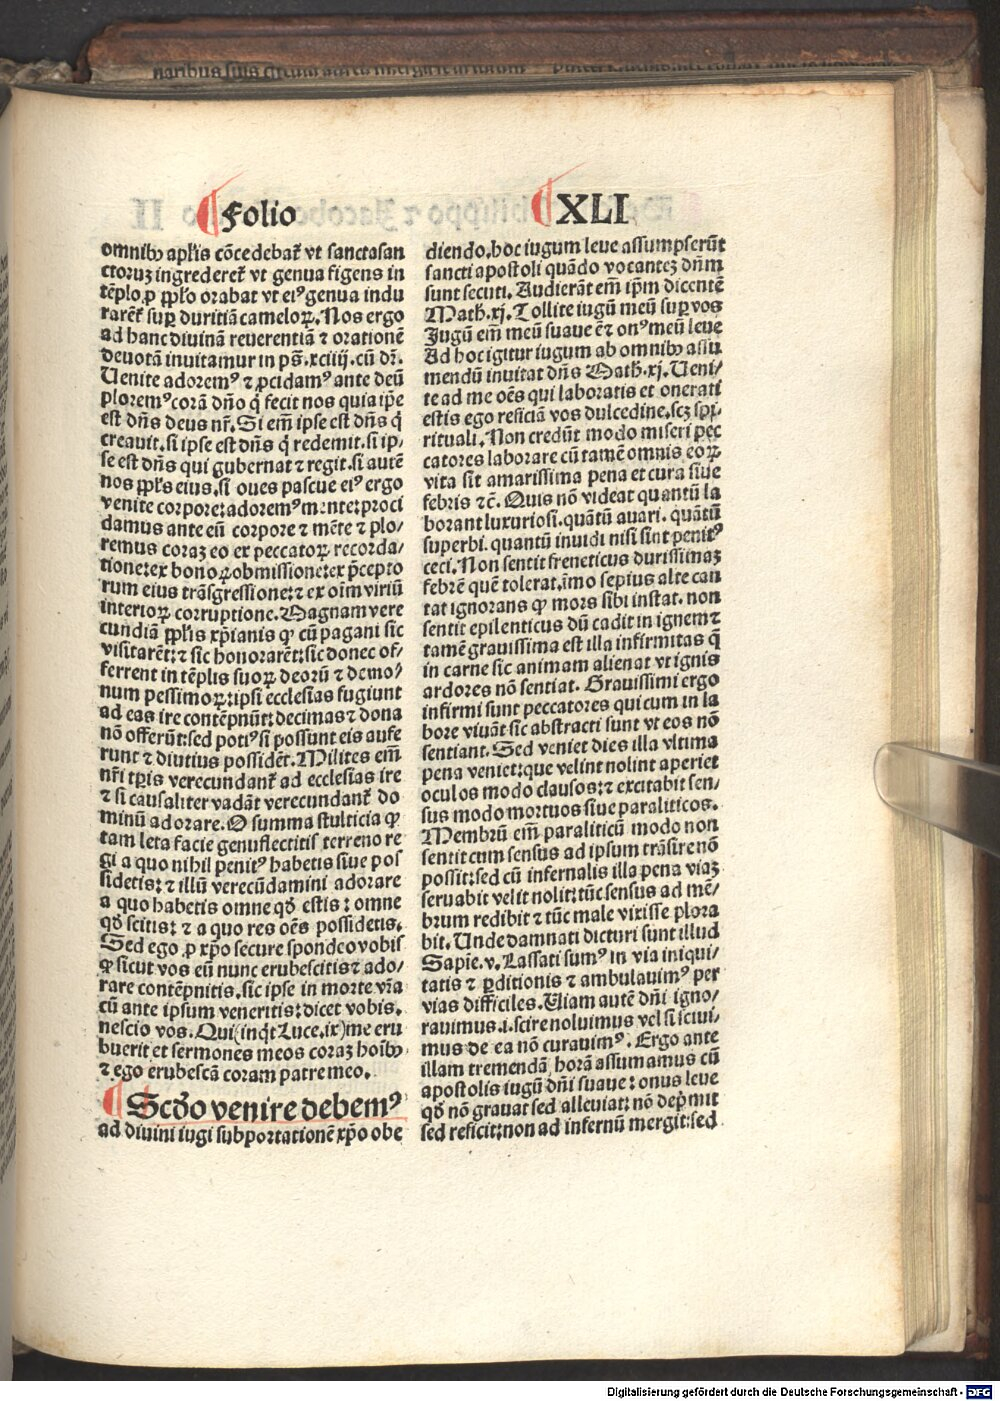 Folio XLI
omnibꝫ apl̄is cōcedebat᷑ vt sanctasan
ctoruꝫ ingrederet᷑ vt genua figens in
tēplo,ꝓ ppl̄o orabat vt eiꝰ genua indu
rarēt᷑ suꝑ duritiā cameloꝝ. Nos ergo
ad hanc diuinā reuerentiā ⁊ orationē
deuotā inuitamur in ps̄.xciiij.cū dr̄.
Uenite adoremꝰ ⁊ ꝓcidamꝰ ante deū
ploremꝰ corā dn̄o q̇ fecit nos quia ip̄e
est dn̄s deus nr̄. Si em̄ ipse est dn̄s q̇
creauit.si ipse est dn̄s q̇ redemit.si ip/
se est dn̄s qui gubernat ⁊ regit.si autē
nos ppl̄s eius.si oues pascue eiꝰ ergo
venite corpore:adoremꝰ mente:proci
damus ante eū corpore ⁊ mēte ⁊ plo/
remus coraꝫ eo ex peccatoꝝ recorda/
tione:ex bonoꝝ obmissione:ex p̄cepto
rum eius trāsgressione:⁊ ex oīm viriū
interioꝝ corruptione. Magnam vere
cundiā ppl̄is xp̄ianis ꝙ cū pagani sic
visitarēt:⁊ sic honorarēt:sic donec of/
ferrent in tēplis suoꝝ deorū ⁊ demo/
num pessimoꝝ:ipsi ecclesias fugiunt
ad eas ire contēpnūt:decimas ⁊ dona
nō offerūt:sed potiꝰ si possunt eis aufe
runt ⁊ diutius possidēt. Milites em̄
nr̄i tp̄is verecundant᷑ ad ecclesias ire
⁊ si causaliter vadāt verecundant᷑ do
minū adorare. O summa stulticia ꝙ
tam leta facie genuflectitis terreno re
gi a quo nihil penitꝰ habetis siue pos
sidetis:⁊ illū verecūdamini adorare
a quo habetis omne qd̄ estis: omne
qd̄ scitis: ⁊ a quo res oēs possidetis.
Sed ego ꝓ xp̄o secure spondeo vobis
ꝙ sicut vos eū nunc erubescitis ⁊ ado/
rare contēpnitis.sic ipse in morte vr̄a
cū ante ipsum veneritis:dicet vobis.
nescio vos. Qui(inqt Luce.ix)me eru
buerit et sermones meos coraꝫ hoībꝫ
⁊ ego erubescā coram patre meo.
Scdo venire debemꝰ
ad diuini iugi subportationē xp̄o obe
diendo.hoc iugum leue assumpserūt
sancti apostoli quādo vocanteꝫ dn̄m
sunt secuti. Audierāt em̄ ip̄m dicentē
Math.xj. Tollite iugū meū suꝑ vos
Jugū em̄ meū suaue ē ⁊ onꝰ meū leue
Ad hoc igitur iugum ab omnibꝫ assu
mendū inuitat dn̄s Math.xj. Ueni/
te ad me oēs qui laboratis et onerati
estis ego reficiā vos dulcedine.scꝫ spi
rituali. Non credūt modo miseri pec
catores laborare cū tamē omnis eoꝝ
vita sit amarissima pena et cura siue
febris ⁊c̄. Quis nō videat quantū la
borant luxuriosi.quātū auari. quātū
superbi. quantū inuidi nisi sint penitꝰ
ceci. Non sentit freneticus durissimaꝫ
febrē quē tolerat.īmo sepius alte can
tat ignorans ꝙ mors sibi instat. non
sentit epilenticus dū cadit in ignem ⁊
tamē grauissima est illa infirmitas q̄
in carne sic animam alienat vt ignis
ardores nō sentiat. Grauissimi ergo
infirmi sunt peccatores qui cum in la
bore viuāt sic abstracti sunt vt eos nō
sentiant. Sed veniet dies illa vltima
pena veniet:que velint nolint aperiet
oculos modo clausos:⁊ excitabit sen/
sus modo mortuos siue paraliticos.
Membrū em̄ paraliticū modo non
sentit cum sensus ad ipsum trāsire nō
possit:sed cū infernalis illa pena viaꝫ
seruabit velit nolit:tūc sensus ad mē/
brum redibit ⁊ tūc male vixisse plora
bit. Unde damnati dicturi sunt illud
Sapīe.v. Lassati sumꝰ in via iniqui/
tatis ⁊ ꝑditionis ⁊ ambulauimꝰ per
vias difficiles. Uiam autē dn̄i igno/
rauimus.i.scire noluimus vel si sciui/
mus de ea nō curauimꝰ. Ergo ante
illam tremendā horā assumamus cū
apostolis iugū dn̄i suaue: onus leue
qd̄ nō grauat sed alleuiat: nō dep̄mit
sed reficit:non ad infernū mergit:sed
Digitalisierung gefördert durch die Deutsche Forschungsgemeinschaft - DFG